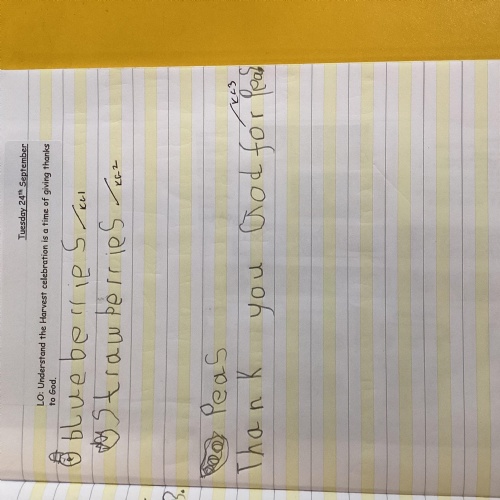 Tuesday 24th September
LO: Understand the Harvest celebration is a time of giving thanks
to God.
blueberries KC1
Strawberries KC2
Peas
Thank you God for Peas KC3
3.